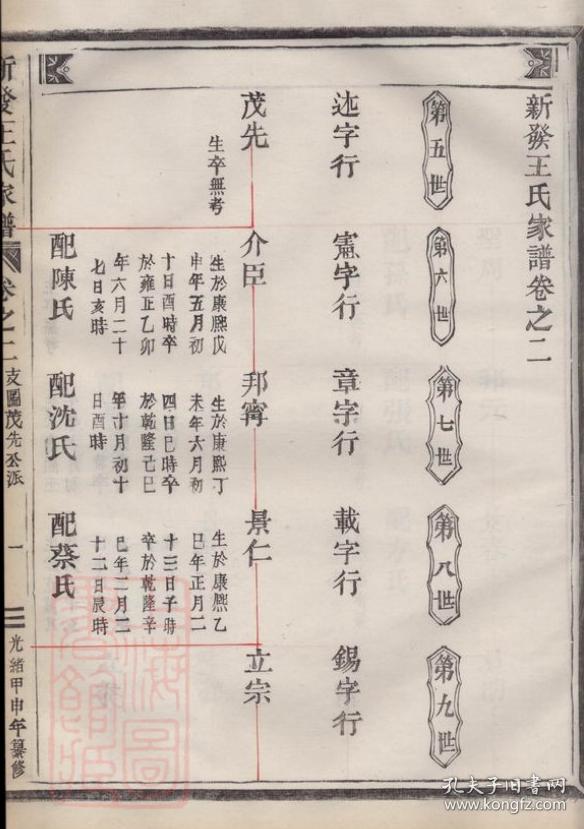 新發王氏家譜卷之二
第五世
第六世
第七世
第八世
第九世
迯字行
憲字行
章字行
載字行
錫字行
茂先
生卒無考
介臣
生於康熙戊
申年五月初
十日酉時卒
於雍正乙卯
年六月二十
七日亥時
配陳氏
邦甯
生於康熙丁
未年六月初
四日巳時卒
於乾隆己巳
年十月初十
日酉時
配沈氏
景仁
生於康熙乙
巳年正月二
十三日子時
卒於乾隆辛
巳年二月二
十二日辰時
配蔡氏
立宗
新發王氏家譜
卷之二
支圖茂先公派
一
光緒甲申年纂修
孔夫子旧书网
www.kongfz.com